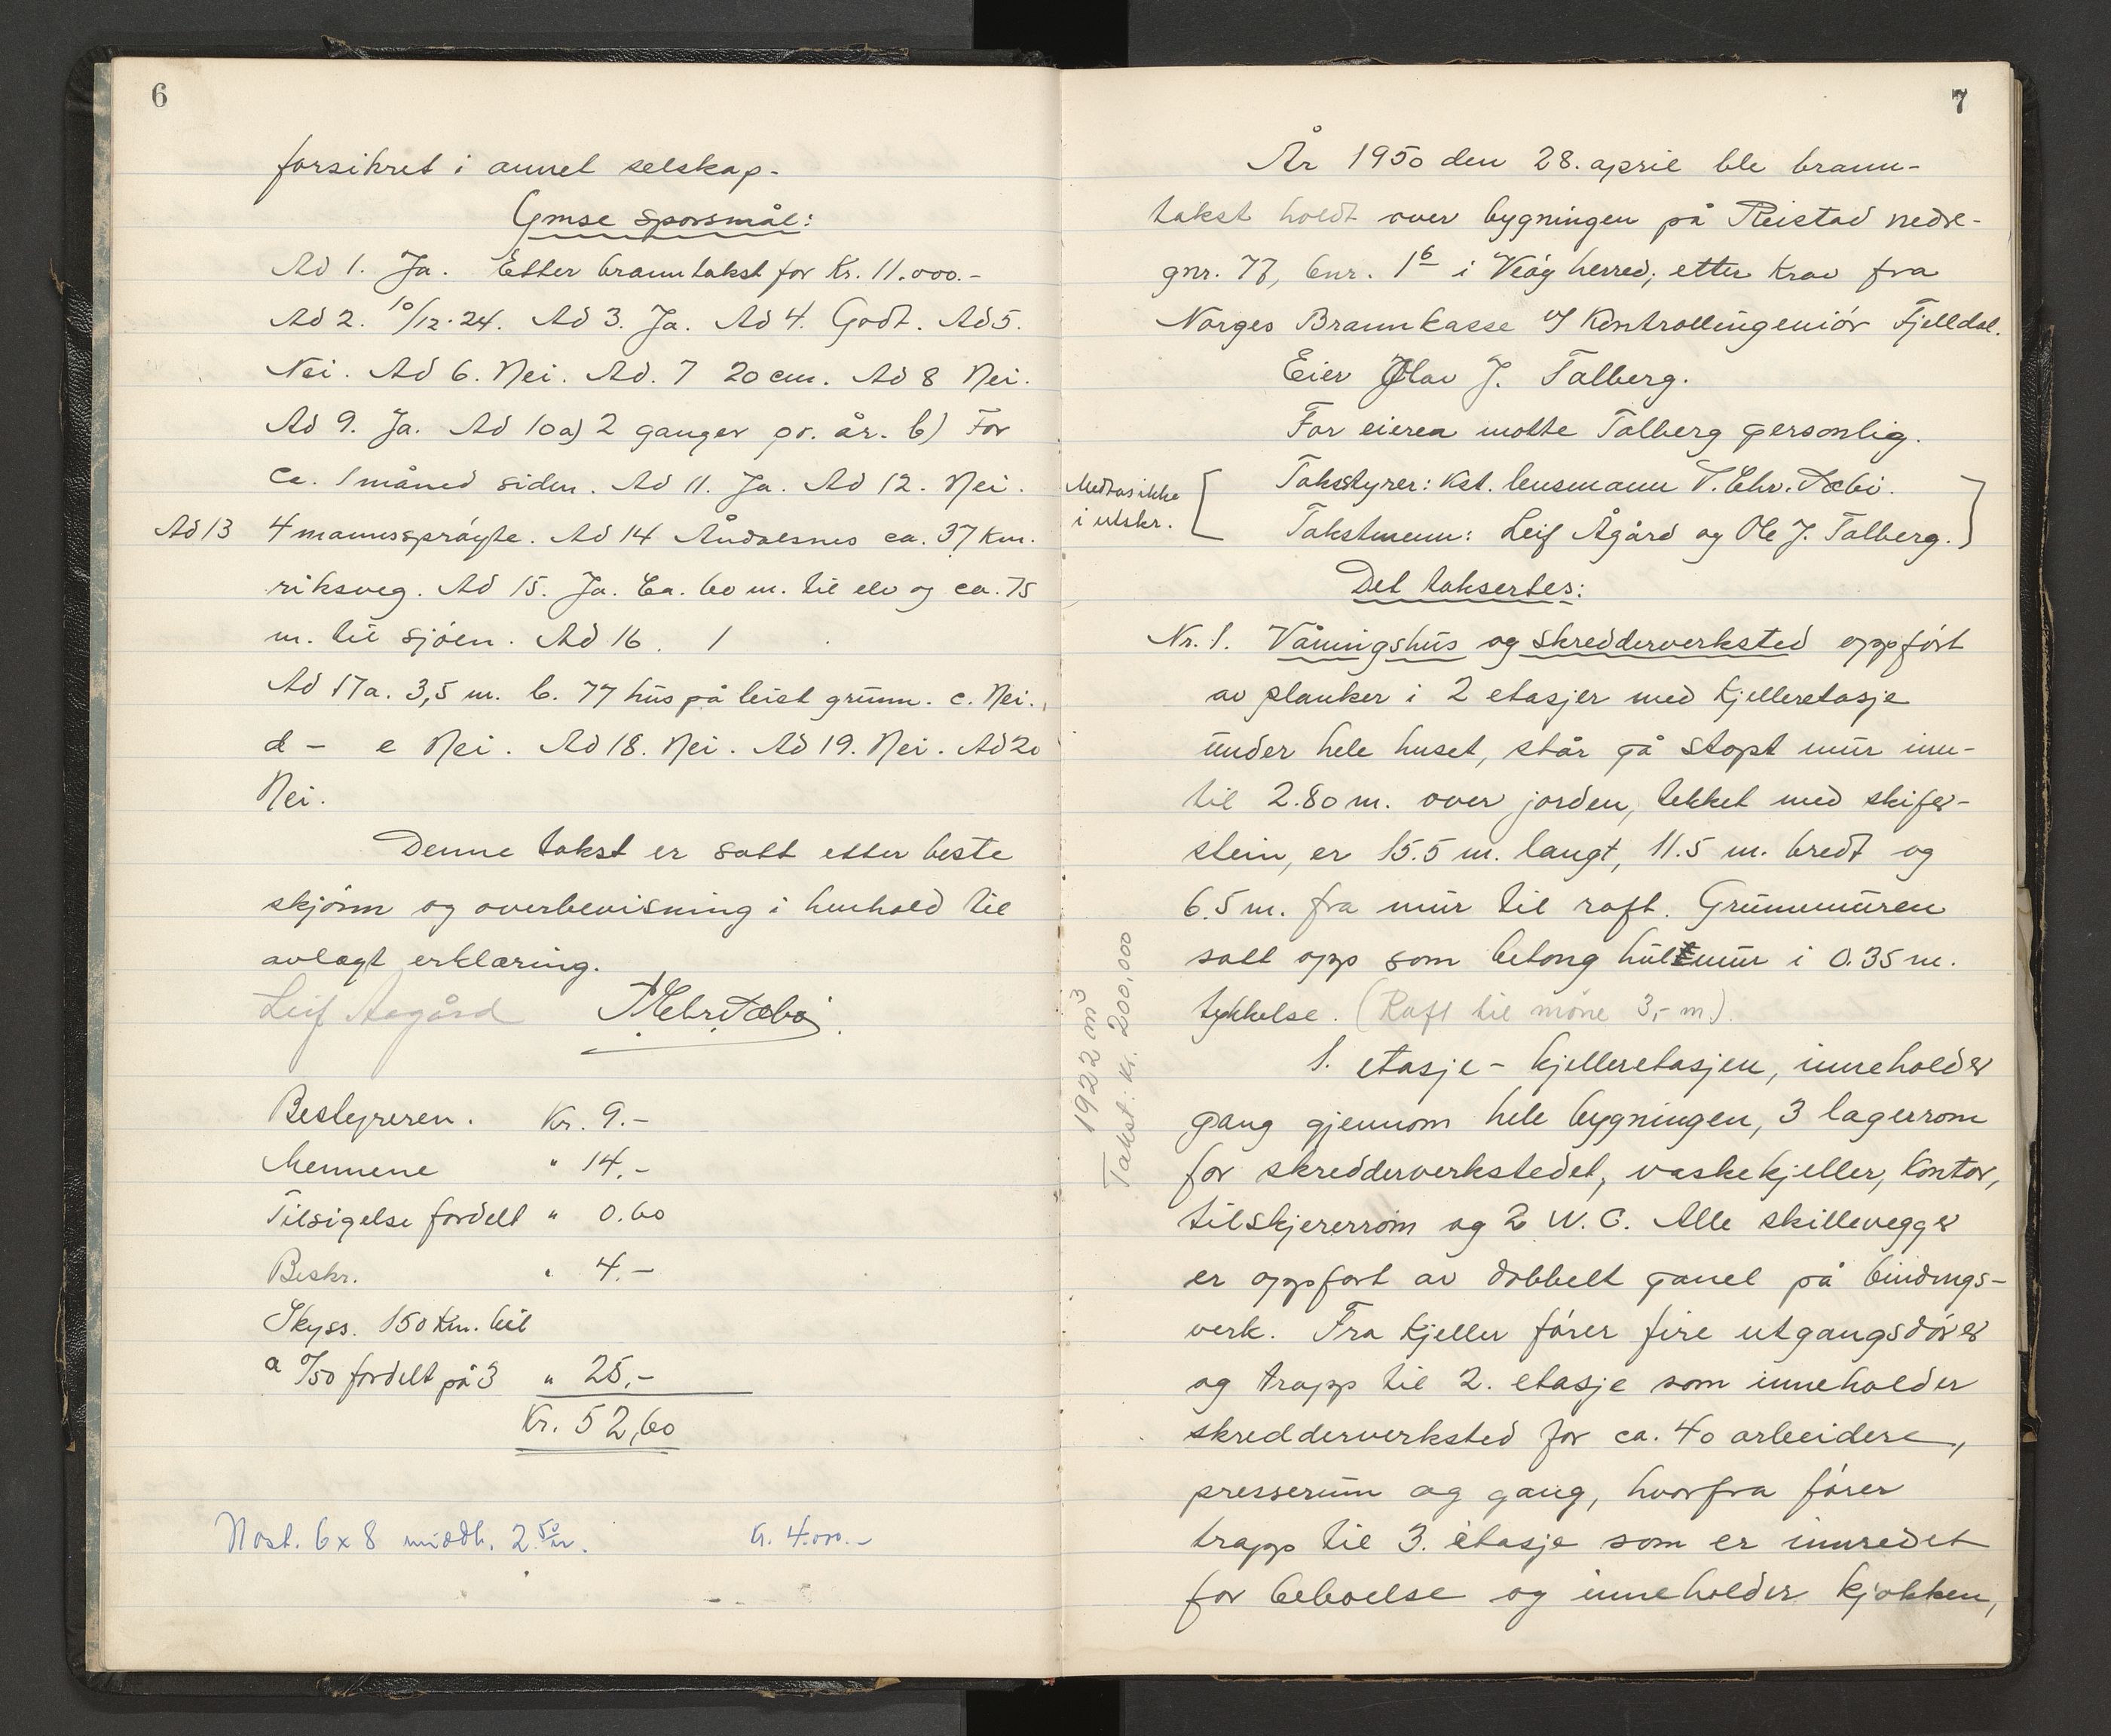 6
forsikret i annet selskap.
Ymse spørsmål:
Ad 1. Ja. Etter branntakst for Kr. 11.000.-
Ad 2. 10/12.24. Ad 3. Ja. Ad 4. Godt. Ad 5.
Nei. Ad 6. Nei. Ad. 7 20 cm. Ad 8 Nei.
Ad 9. Ja. Ad 10a) 2 ganger pr. år. b) For
ca. 1 måned siden. Ad 11. Ja. Ad 12. Nei.
Ad 13 4 mannssprøyte. Ad 14 Åndalsnes ca. 37 km.
riksveg. Ad 15. Ja. Ca. 60 m. til elv og ca. 75
m. til sjøen. Ad 16. 1
Ad 17a. 3,5 m. b. 77 hus på leiet grunn. c. Nei.
d - e Nei. Ad 18. Nei. Ad 19. Nei. Ad 20
Nei.
Denne takst er satt etter beste
skjønn og overbevisning i henhold til
avlagt erklæring.
Leif Aagård
Bestyreren. Kr. 9.-
Mennene " 14.-
Tilsigelse fordelt " 0.60
Beskr. " 4.-
Skyss. 150 km. bil
a 0/50 fordelt på 3 " 25.-
Kr. 52,60
Nost. 6x8 middh. 2.50 m. Kr. 4.000.-
7
År 1950 den 28. april ble brann-
takst holdt over bygningen på Reistad nedre-
gnr. 77, bnr. 16 i Veøy herred, etter krav fra
Norges Brannkasse v/ Kontrollingeniør Fjelldal.
Eier Olav J. Talberg.
For eieren møtte Talberg personlig.
Medtas ikke
i utskr.
Takstyrer: Kst. lensmann T. Chr. Dæbi.
Takstmenn: Leif Ågård og Ole J. Talberg.
Det takseres:
Nr. 1. Våningshus og skredderverksted oppført
av planker i 2 etasjer med kjelleretasje
under hele huset, står på støpt mur inn-
til 2.80 m. over jorden, tekket med skifer-
stein, er 15.5 m. langt, 11.5 m. bredt og
6.5 m. fra mur til raft. Grunnmuren
satt opp som betong hulmur i 0.35 m.
tykkelse. (Raft til møne 3,- m.).
1922 m3
Takst: Kr. 200,000
1. etasje - kjelleretasjen, inneholder
gang gjennom hele bygningen, 3 lagerrom
for skredderverkstedet, vaskekjeller, kontor,
tilskjererrom og 2 W.C. Alle skillevegger
er oppført av dobbelt panel på bindings-
verk. Fra kjeller fører fire utgangsdører
og trapp til 2. etasje som inneholder
skredderverksted for ca. 40 arbeidere,
presserum og gang, hvorfra fører
trapp til 3. etasje som er innredet
for beboelse og inneholder kjøkken,